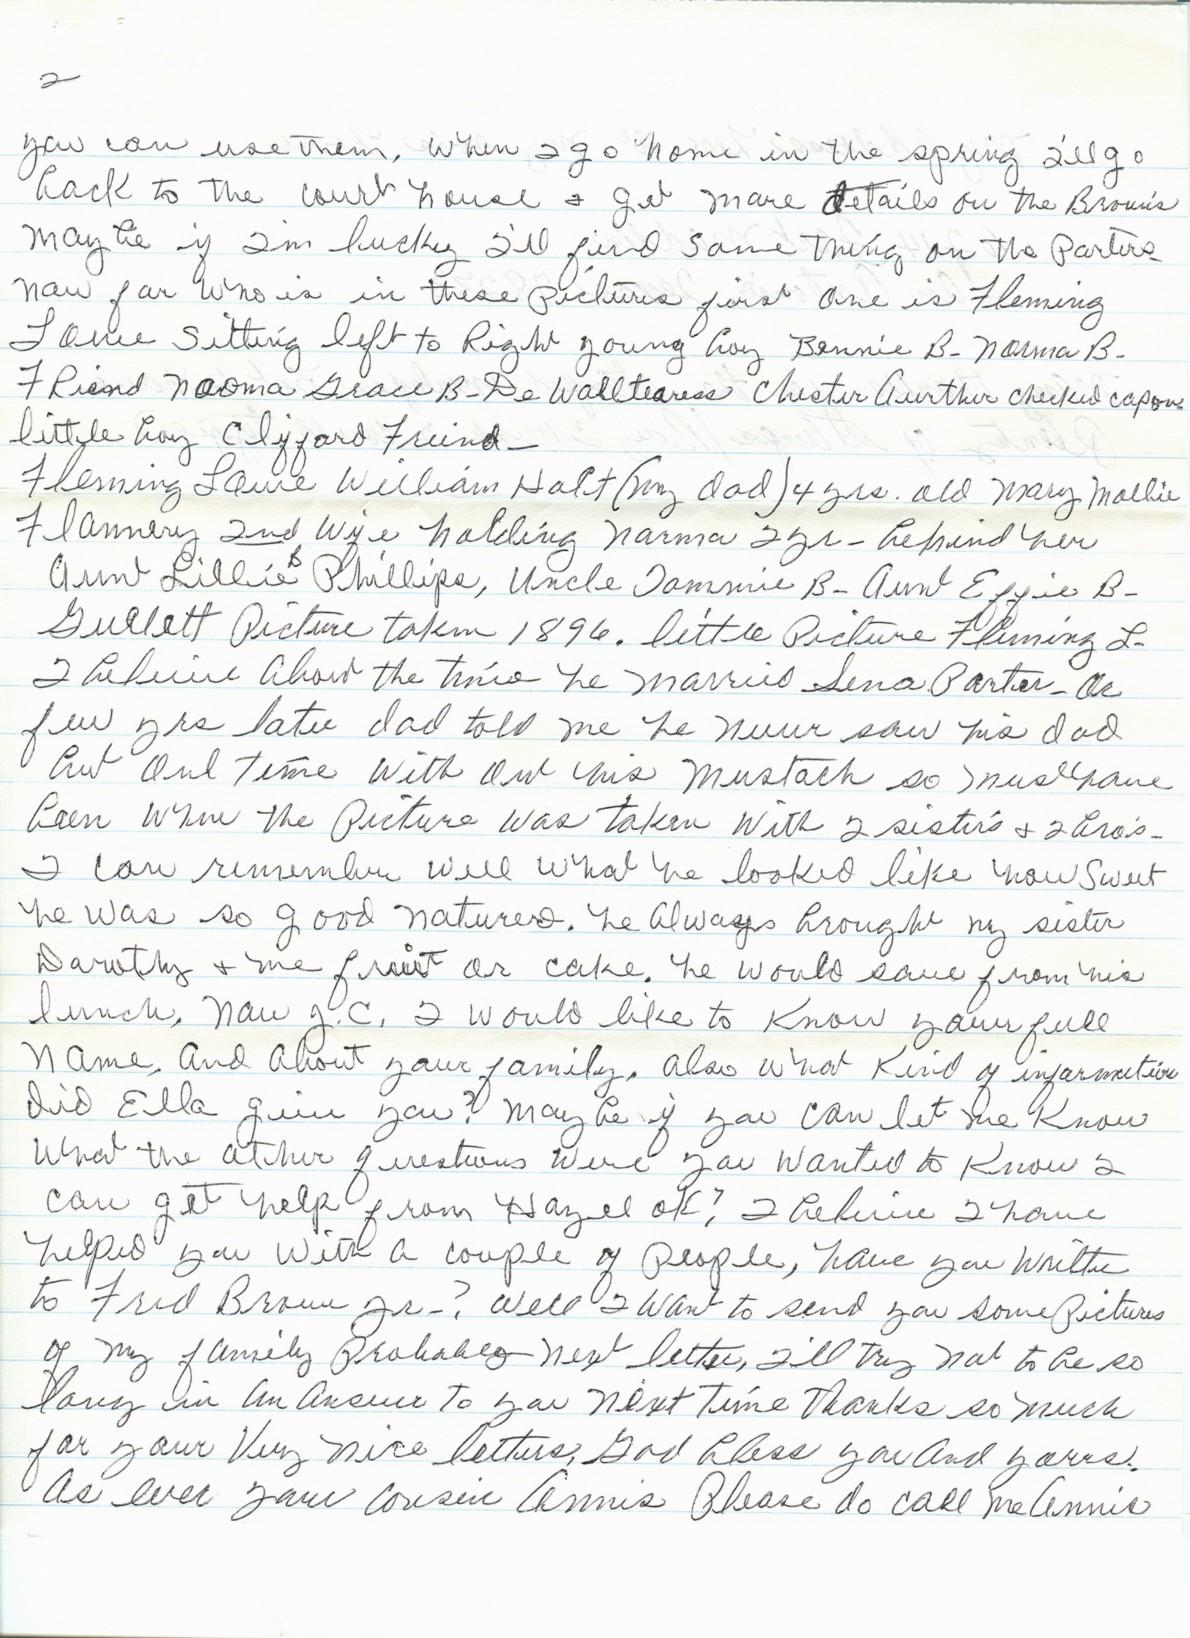 2
you can use them, When I go home in the spring I'll go
back to the court house & get more details on the Brown's
Maybe if I'm lucky I'll find some thing on the Porters
now for who is in these pictures first one is Fleming
Louie Sitting left to Right young boy Bennie B- Norma B-
Friend Naoma Grace B- De Walltearess Chester Aurther checked cap on
little boy Clifford Freind-
Fleming Louie William Holt (my dad) 4 yrs. old Mary Mollie
Flannery 2nd wife holding Norma 2 yr- behind her
Aunt Lillie B Phillips, Uncle Tommie B- Aunt Effie B-
Gullett Picture taken 1896. little Picture Fleming L-
I believe about the time he married Lena Porter- Or
few yrs later dad told me he never saw his dad
but one time with out his Mustach so must have
been when the Picture was taken with 2 sister's & 2 bro's-
I can remember well what he looked like how Sweet
he was so good natured. he always brought my sister
Dorothy & me fruit or cake. he would save from his
lunch, Now J.C. I would like to know your full
Name, And About your family, also what kind of information
did Ella give you? Maybe if you can let me know
What the other questions were you wanted to know I
can get help from Hazel ok? I believe I have
helped you with a couple of people, have you written
to Fred Brown Jr-? Well I want to send you some Pictures
of my family Probabley next letter, I'll try not to be so
long in an answer to you next time thanks so much
for your Very nice letters, God bless you and yours.
As ever your cousin Annis Please do call me Annis